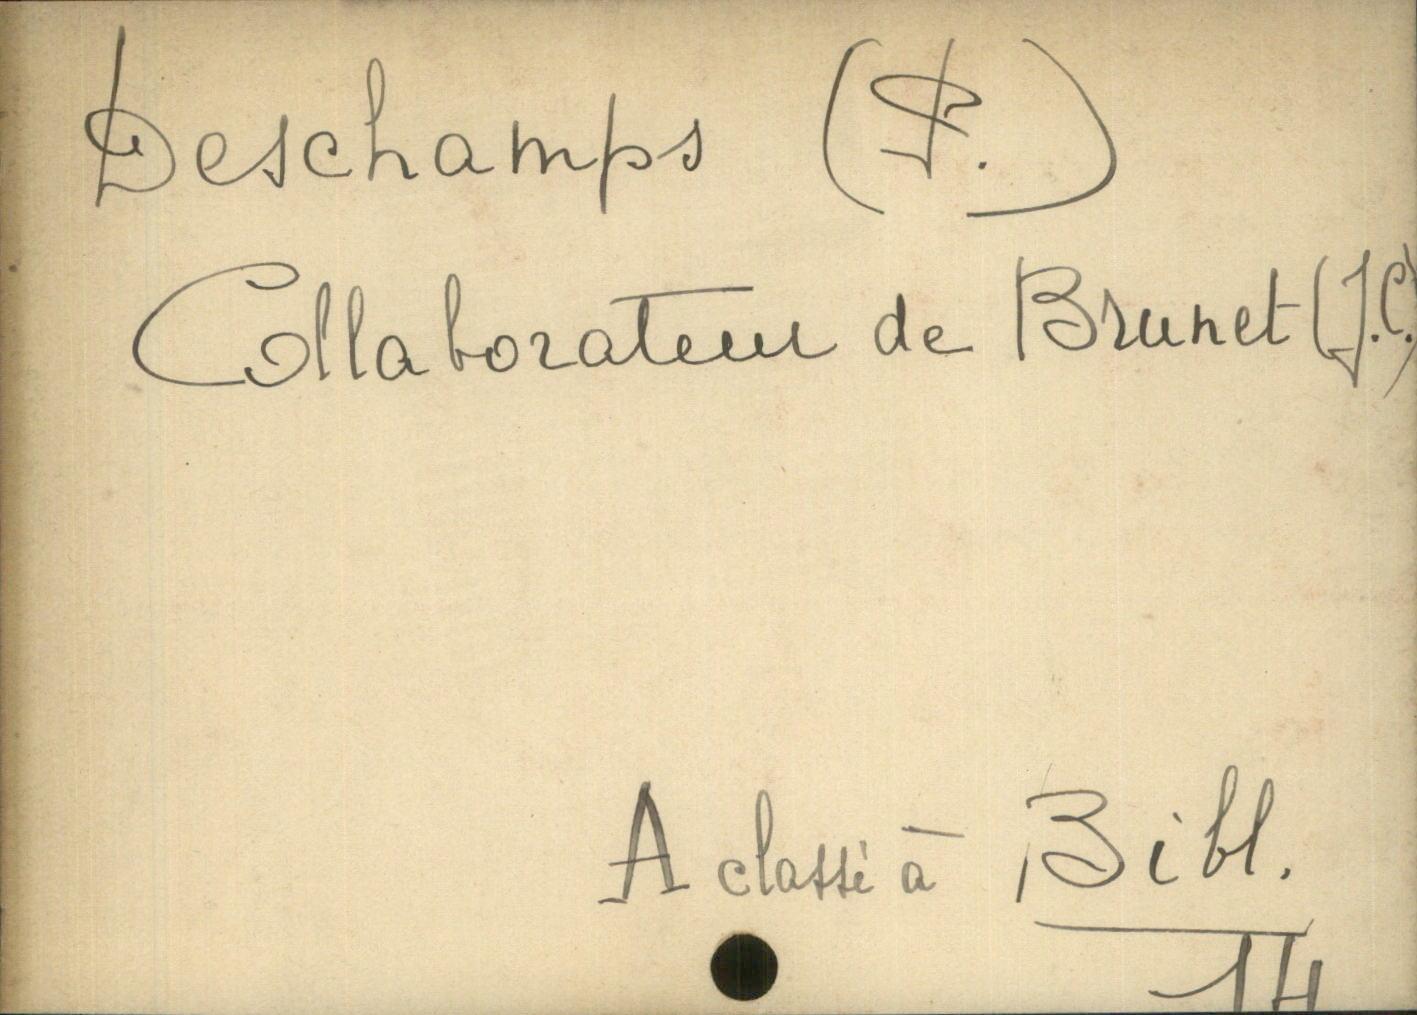 Deschamps (P.)
Collaborateur de Brunet (J.C.)
A classé à Bibl.
14